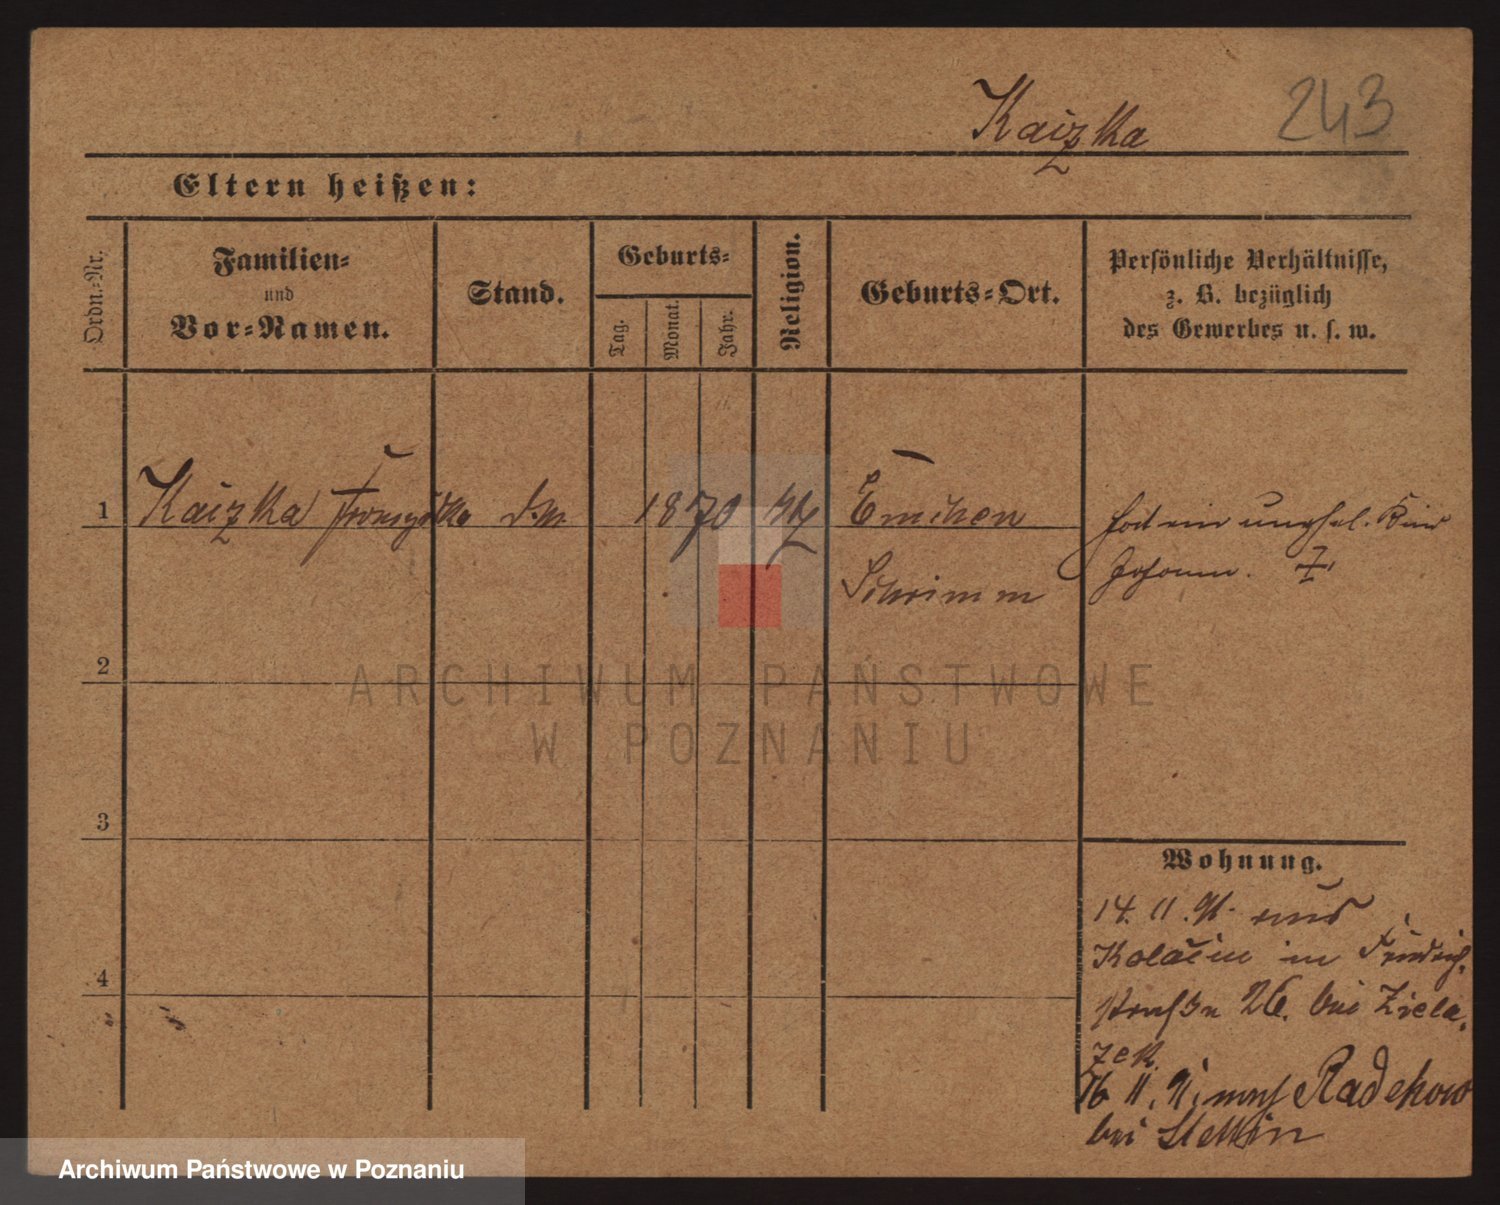 Kaizka 243
Eltern heißen:
Ordn.-Nr.
Familien-
und
Vor-Namen.
Stand.
Geburts-
Tag.
Monat.
Jahr.
Religion.
Geburts-Ort.
Persönliche Verhältnisse,
z. B. bezüglich
des Gewerbes u. s. w.
1 Kaizka 1870 Emchen hat ein unehel. Kind
Schrimm Johann.
2
ARCHIWUM PAŃSTWOWE
W POZNANIU
3
Wohnung.
14. 11. 91. aus
Kolačin in Friedrich
straße 26. bei Ziela
zek.
16 11. 91. nach Radekow
bei Stettin
4
Archiwum Państwowe w Poznaniu